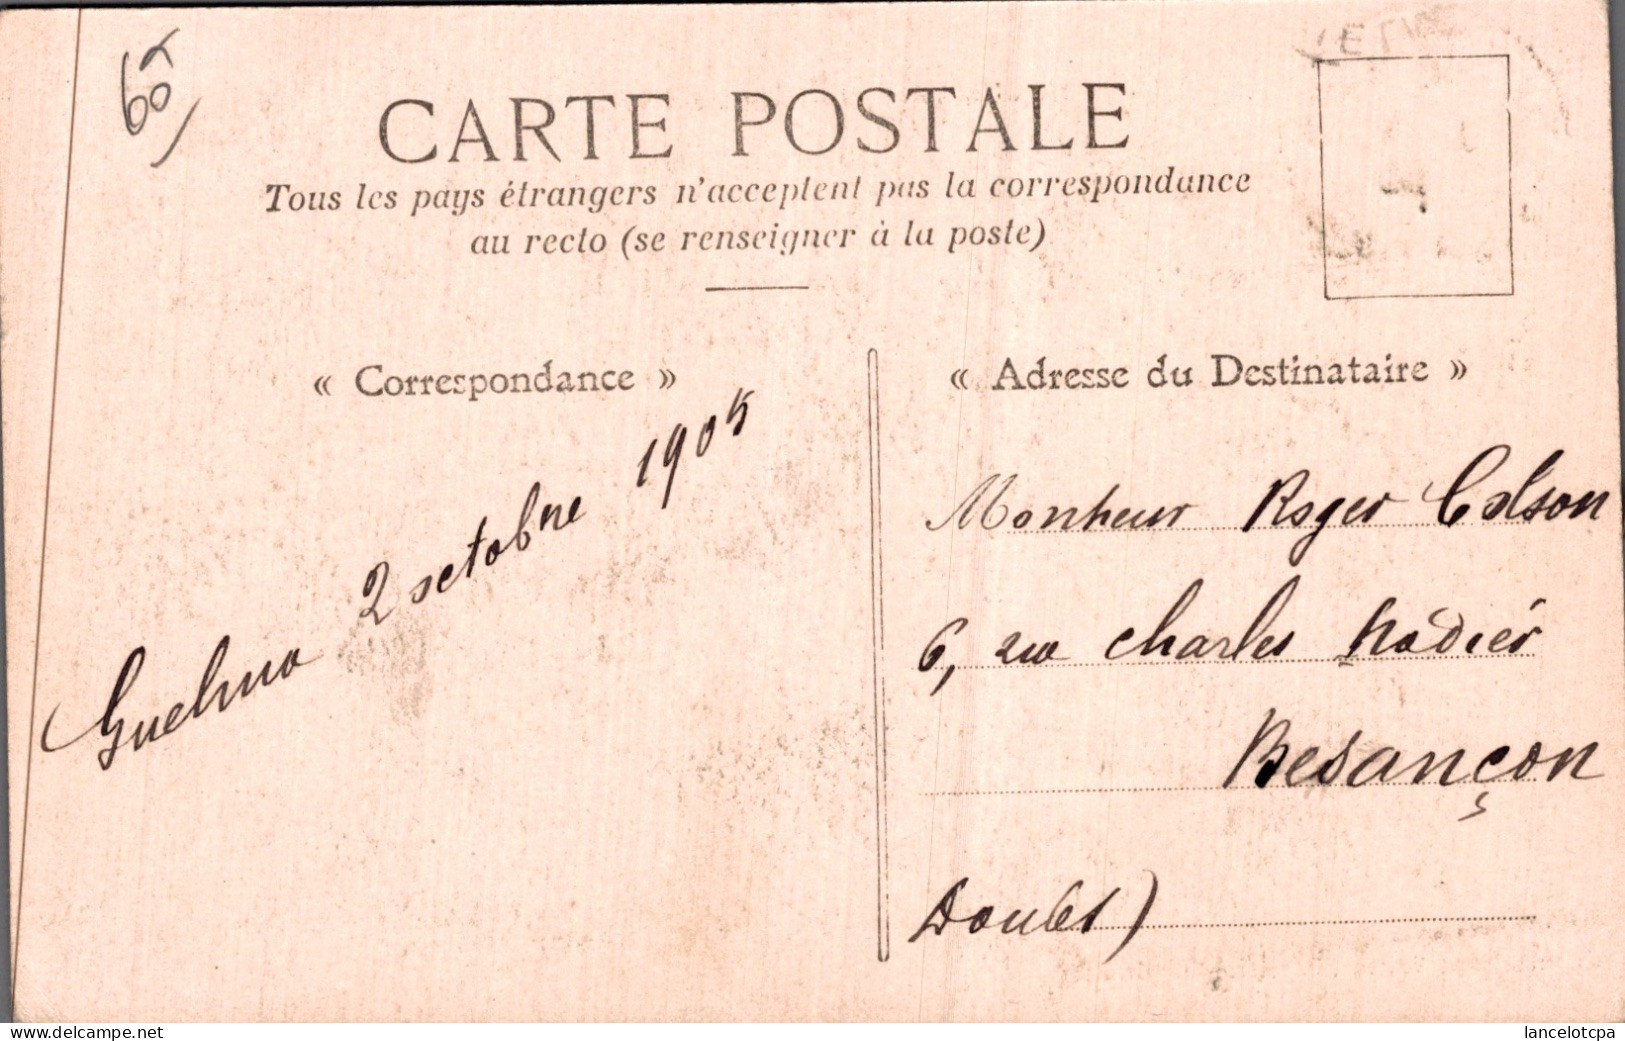 60
CARTE POSTALE
Tous les pays étrangers n'acceptent pas la correspondance
au recto (se renseigner à la poste)
« Correspondance »
Guelma 2 octobre 1905
« Adresse du Destinataire »
Monsieur Roger Colson
6, rue Charles Nodier
Besançon
Doubs)
www.delcampe.net
lancelotcpa